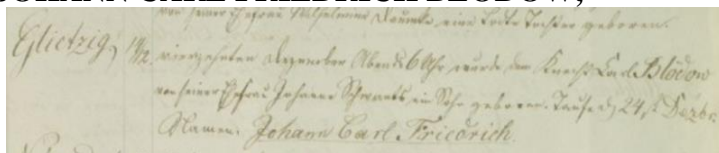 JOHANN CARL FRIEDRICH BLODOW,
von seiner Ehefrau Wilhelmine eine todte Tochter geboren.
Glietzig, 14/12 vierzehnten Dezember Abends 6 Uhr wurde dem Knecht Carl Blödow
von seiner Ehefrau Johanne Schwantz ein Sohn geboren. Taufe d 24st Dezbr.
Namen: Johann Carl Friedrich.